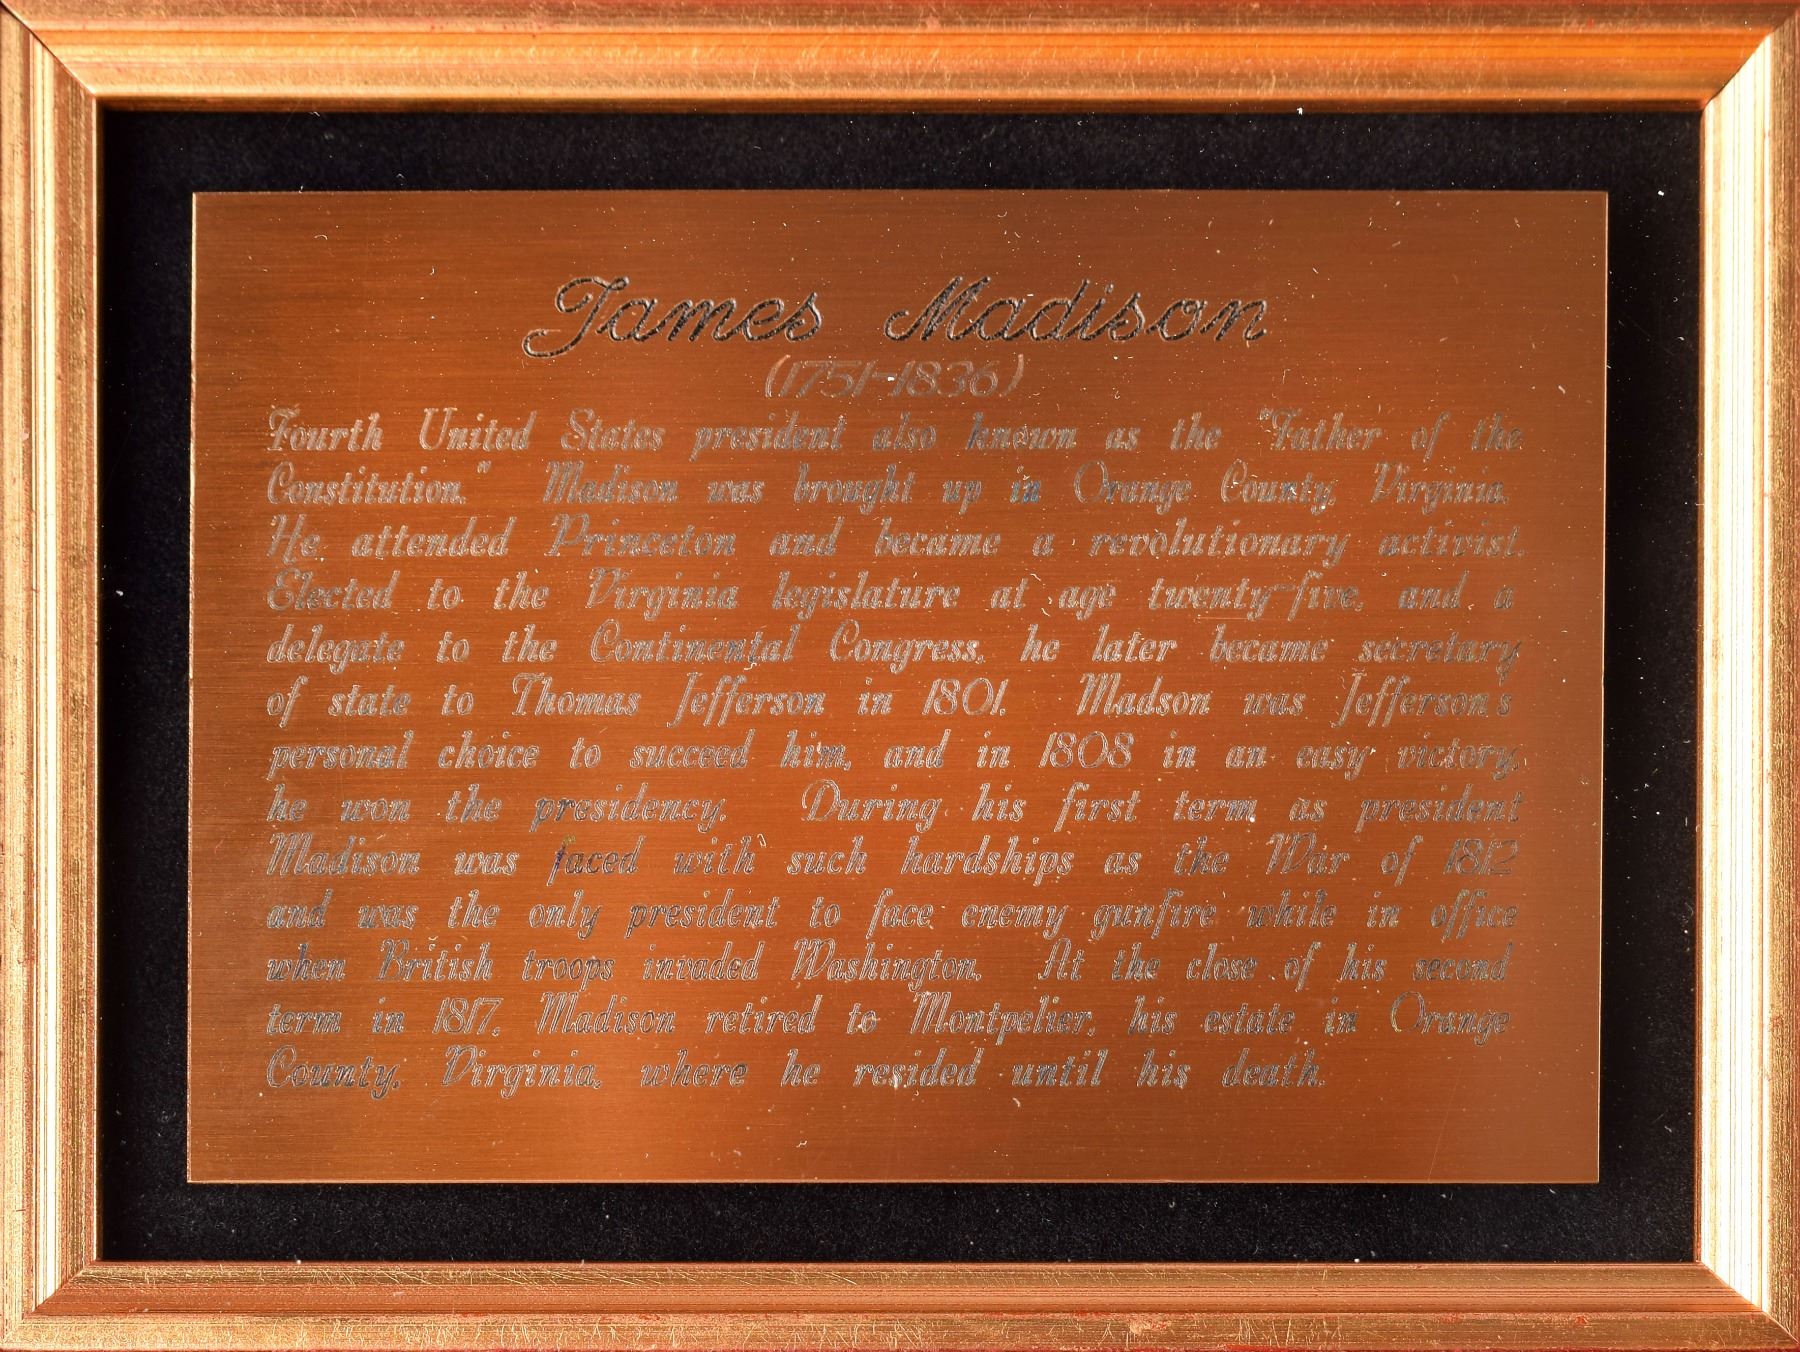 James Madison
(1751-1836)
Fourth United States president also known as the "Father of the
Constitution." Madison was brought up in Orange County, Virginia.
He attended Princeton and became a revolutionary activist.
Elected to the Virginia legislature at age twenty-five, and a
delegate to the Continental Congress, he later became secretary
of state to Thomas Jefferson in 1801. Madson was Jefferson's
personal choice to succeed him, and in 1808 in an easy victory,
he won the presidency. During his first term as president
Madison was faced with such hardships as the War of 1812
and was the only president to face enemy gunfire while in office
when British troops invaded Washington. At the close of his second
term in 1817, Madison retired to Montpelier, his estate in Orange
County, Virginia, where he resided until his death.